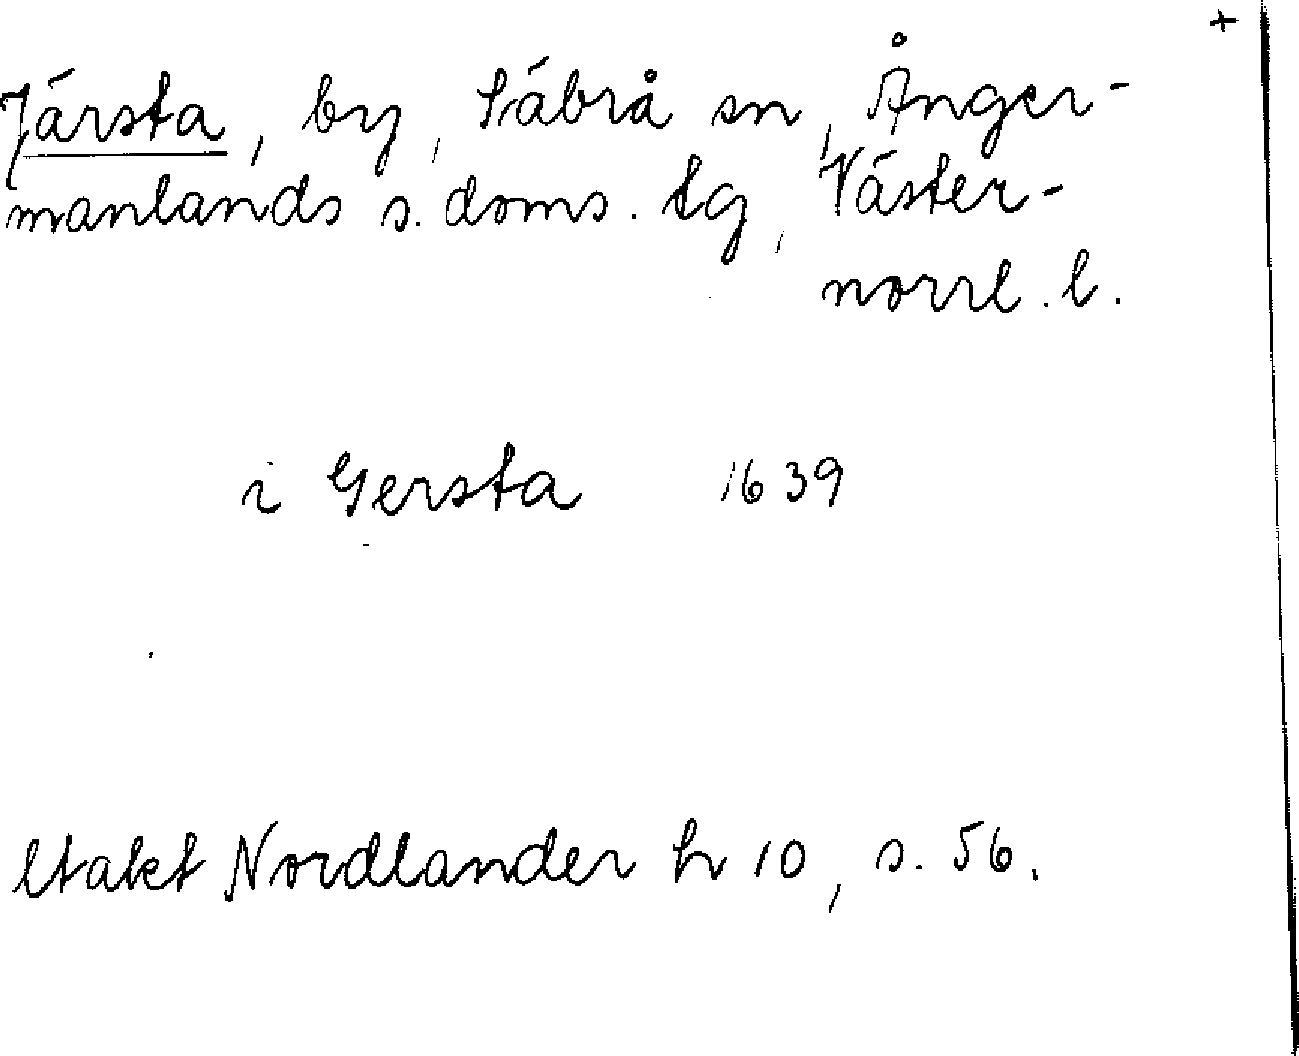 +
Järsta, by, Säbrå sn, Ånger-
manlands s. doms. tg, Väster-
norrl. l.
i Gersta 1639
Utakt Nordlander h 10, s. 56.